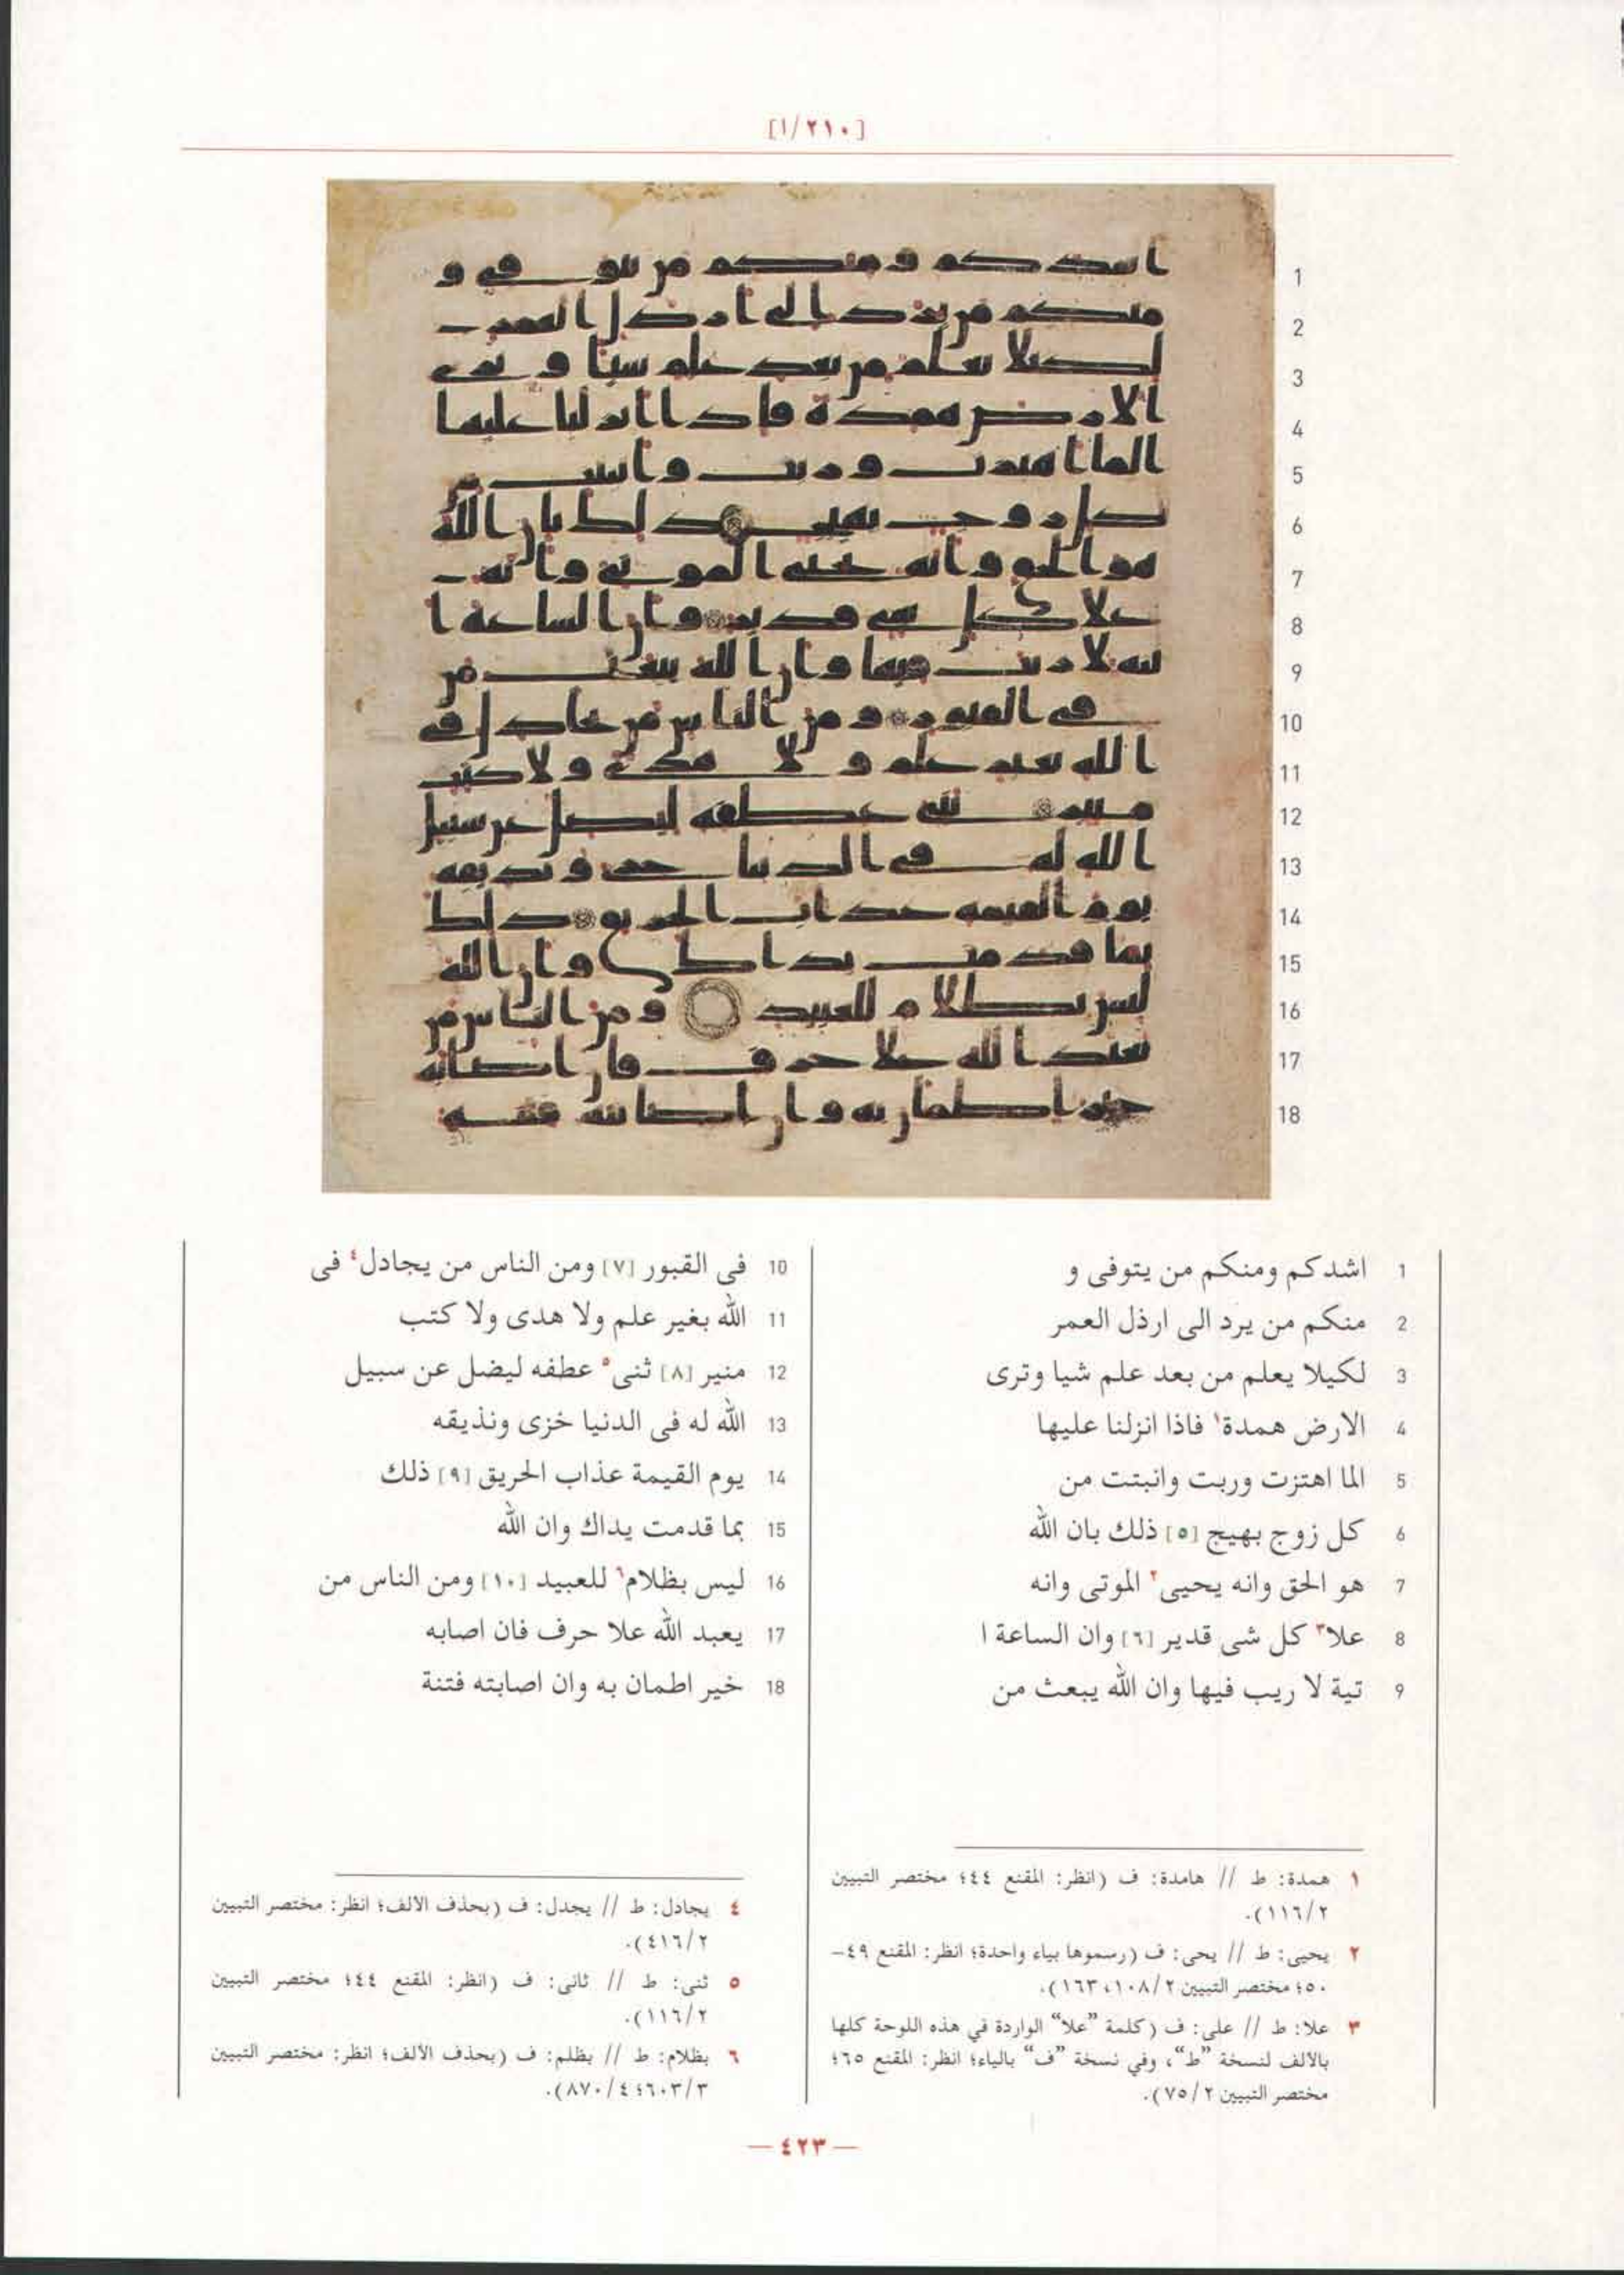 [١/٢١٠]
1 اشدكم ومنكم من يتوفى و
2 منكم من يرد الى ارذل العمر
3 لكيلا يعلم من بعد علم شيا وترى
4 الارض همدة١ فاذا انزلنا عليها
5 الما اهتزت وربت وانبتت من
6 كل زوج بهيج [٥] ذلك بان الله
7 هو الحق وانه يحيى٢ الموتى وانه
8 علا٣ كل شى قدير [٦] وان الساعة ا
9 تية لا ريب فيها وان الله يبعث من
10 فى القبور [٧] ومن الناس من يجادل٤ فى
11 الله بغير علم ولا هدى ولا كتب
12 منير [٨] ثنى٥ عطفه ليضل عن سبيل
13 الله له فى الدنيا خزى ونذيقه
14 يوم القيمة عذاب الحريق [٩] ذلك
15 بما قدمت يداك وان الله
16 ليس بظلام٦ للعبيد [١٠] ومن الناس من
17 يعبد الله علا حرف فان اصابه
18 خير اطمان به وان اصابته فتنة
١ همدة: ط // هامدة: ف (انظر: المقنع ٤٤؛ مختصر التبيين
٢/١١٦).
٢ يحيى: ط // يحى: ف (رسموها بياء واحدة؛ انظر: المقنع ٤٩–
٥٠؛ مختصر التبيين ٢/١٠٨، ١٦٣).
٣ علا: ط // على: ف (كلمة ”علا“ الواردة في هذه اللوحة كلها
بالالف لنسخة ”ط“، وفي نسخة ”ف“ بالياء؛ انظر: المقنع ٦٥؛
مختصر التبيين ٢/٧٥).
٤ يجادل: ط // يجدل: ف (بحذف الالف؛ انظر: مختصر التبيين
٢/٤١٦).
٥ ثنى: ط // ثانى: ف (انظر: المقنع ٤٤؛ مختصر التبيين
٢/١١٦).
٦ بظلام: ط // بظلم: ف (بحذف الألف؛ انظر: مختصر التبيين
٣/٦٠٣؛ ٤/٨٧٠).
— ٤٢٣ —